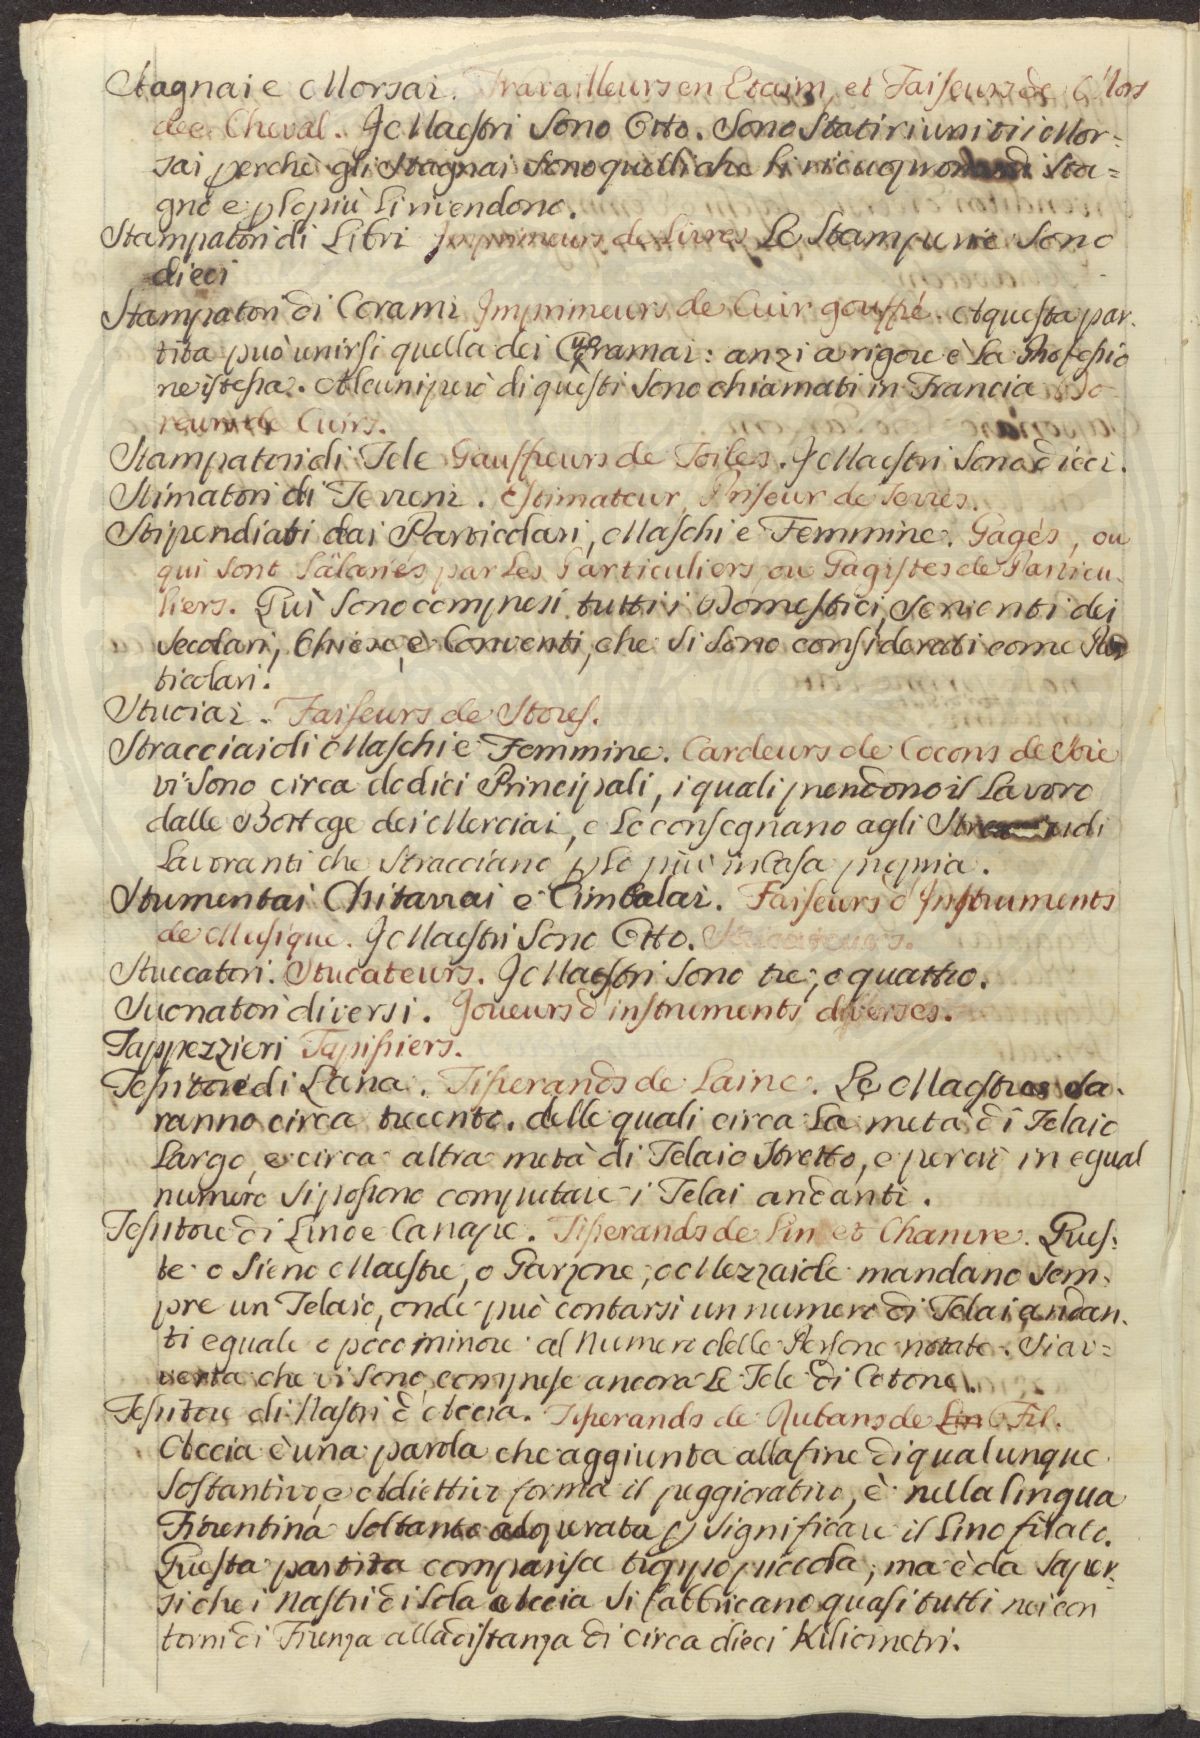 Stagnai e Morsai. Travailleurs en Etaim, et Faiseurs de Mors
dee Cheval. I Maestri sono Otto. Sono Stati riuniti i Mor=
sai perchè gli Stagnai sono quelli che li ricuoprono di Sta=
gno e p lo più li rivendono.
Stampatori di Libri Imprimeurs de Livres Le Stamperie sono
dieci
Stampatori di Corami Imprimeurs de Cuir gouffré. A questa par.
tita può unirsi quella dei Cuoramai: anzi a rigore è la Professio
ne istessa. Alcuni però di questi sono chiamati in Francia Do
reurs de Cuirs.
Stampatori di Tele Gauffreurs de Toiles. I Maestri sono dieci.
Stimatori di Terreni. Estimateur, Priseur de Terres.
Stipendiati dai Particolari, Maschi e Femmine. Gagés, ou
qui sont Salariés par les Particuliers ou Gagistes de Particu.
liers. Quì sono compresi tutti i Domestici, Serventi dei
Secolari, Chiese, e Conventi, che si sono considerati come Par
ticolari.
Stuoiai. Faiseurs de Stores.
Stracciaioli Maschi e Femmine. Cardeurs de Cocons de Soie
vi sono circa dodici Principali, i quali prendono il Lavoro
dalle Botteghe dei Merciai, e lo consegnano agli di
Lavoranti che Stracciano p lo più in Casa propria.
Strumentai Chitarrai e Cimbalai. Faiseurs d'Instruments
de Musique. I Maestri sono Otto. Stucateurs.
Stuccatori. Stucateurs. I Maestri sono tre, o quattro.
Suonatori diversi. Joueurs d'instruments diverses.
Tappezzieri Tapissiers.
Tessitore di Lana. Tisserands de Laine. Le Maestre sa.
ranno circa trecento. delle quali circa la metà di Telaio
Largo, e circa altra metà di Telaio Stretto, e perciò in egual
numero si possono computare i Telai andanti.
Tessitore di Lino e Canape. Tisserands de Lin et Chanvre. Ques:
te o sieno Maestre, o Garzone, o Mezzaiole mandano sem.
pre un Telaio, onde può contarsi un numero di Telai andan.
ti eguale o poco minore al Numero delle Persone notate. Si av=
verta che vi sono comprese ancora le Tele di Cotone.
Tessitore di Nastri d'Accia. Tisserands de Rubans de Lin Fil.
Accia è una parola che aggiunta alla fine di qualunque
Sostantivo, e Addiettivo forma il peggiorativo, è nella lingua
Fiorentina soltanto adoperata p significare il Lino filato.
Questa partita comparisce troppo piccola, ma è da saper.
si che i Nastri di sola Accia si fabbricano quasi tutti nei con
torni di Firenze alla distanza di circa dieci Kiliometri.